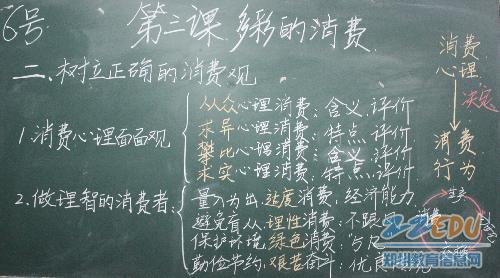 6号 第三课 多彩的消费
二、树立正确的消费观
1.消费心理面面观
从众心理消费:含义.评价
求异心理消费:特点.评价
攀比心理消费:含义.评价
求实心理消费:特点.评价
2.做理智的消费者:
量入为出,适度消费:经济能力
避免盲从,理性消费:不跟风
保护环境,绿色消费:"5R
勤俭节约,艰苦奋斗:优良
消费
心理
决定
消费
行为
消费
EDU
郑州教育信息网